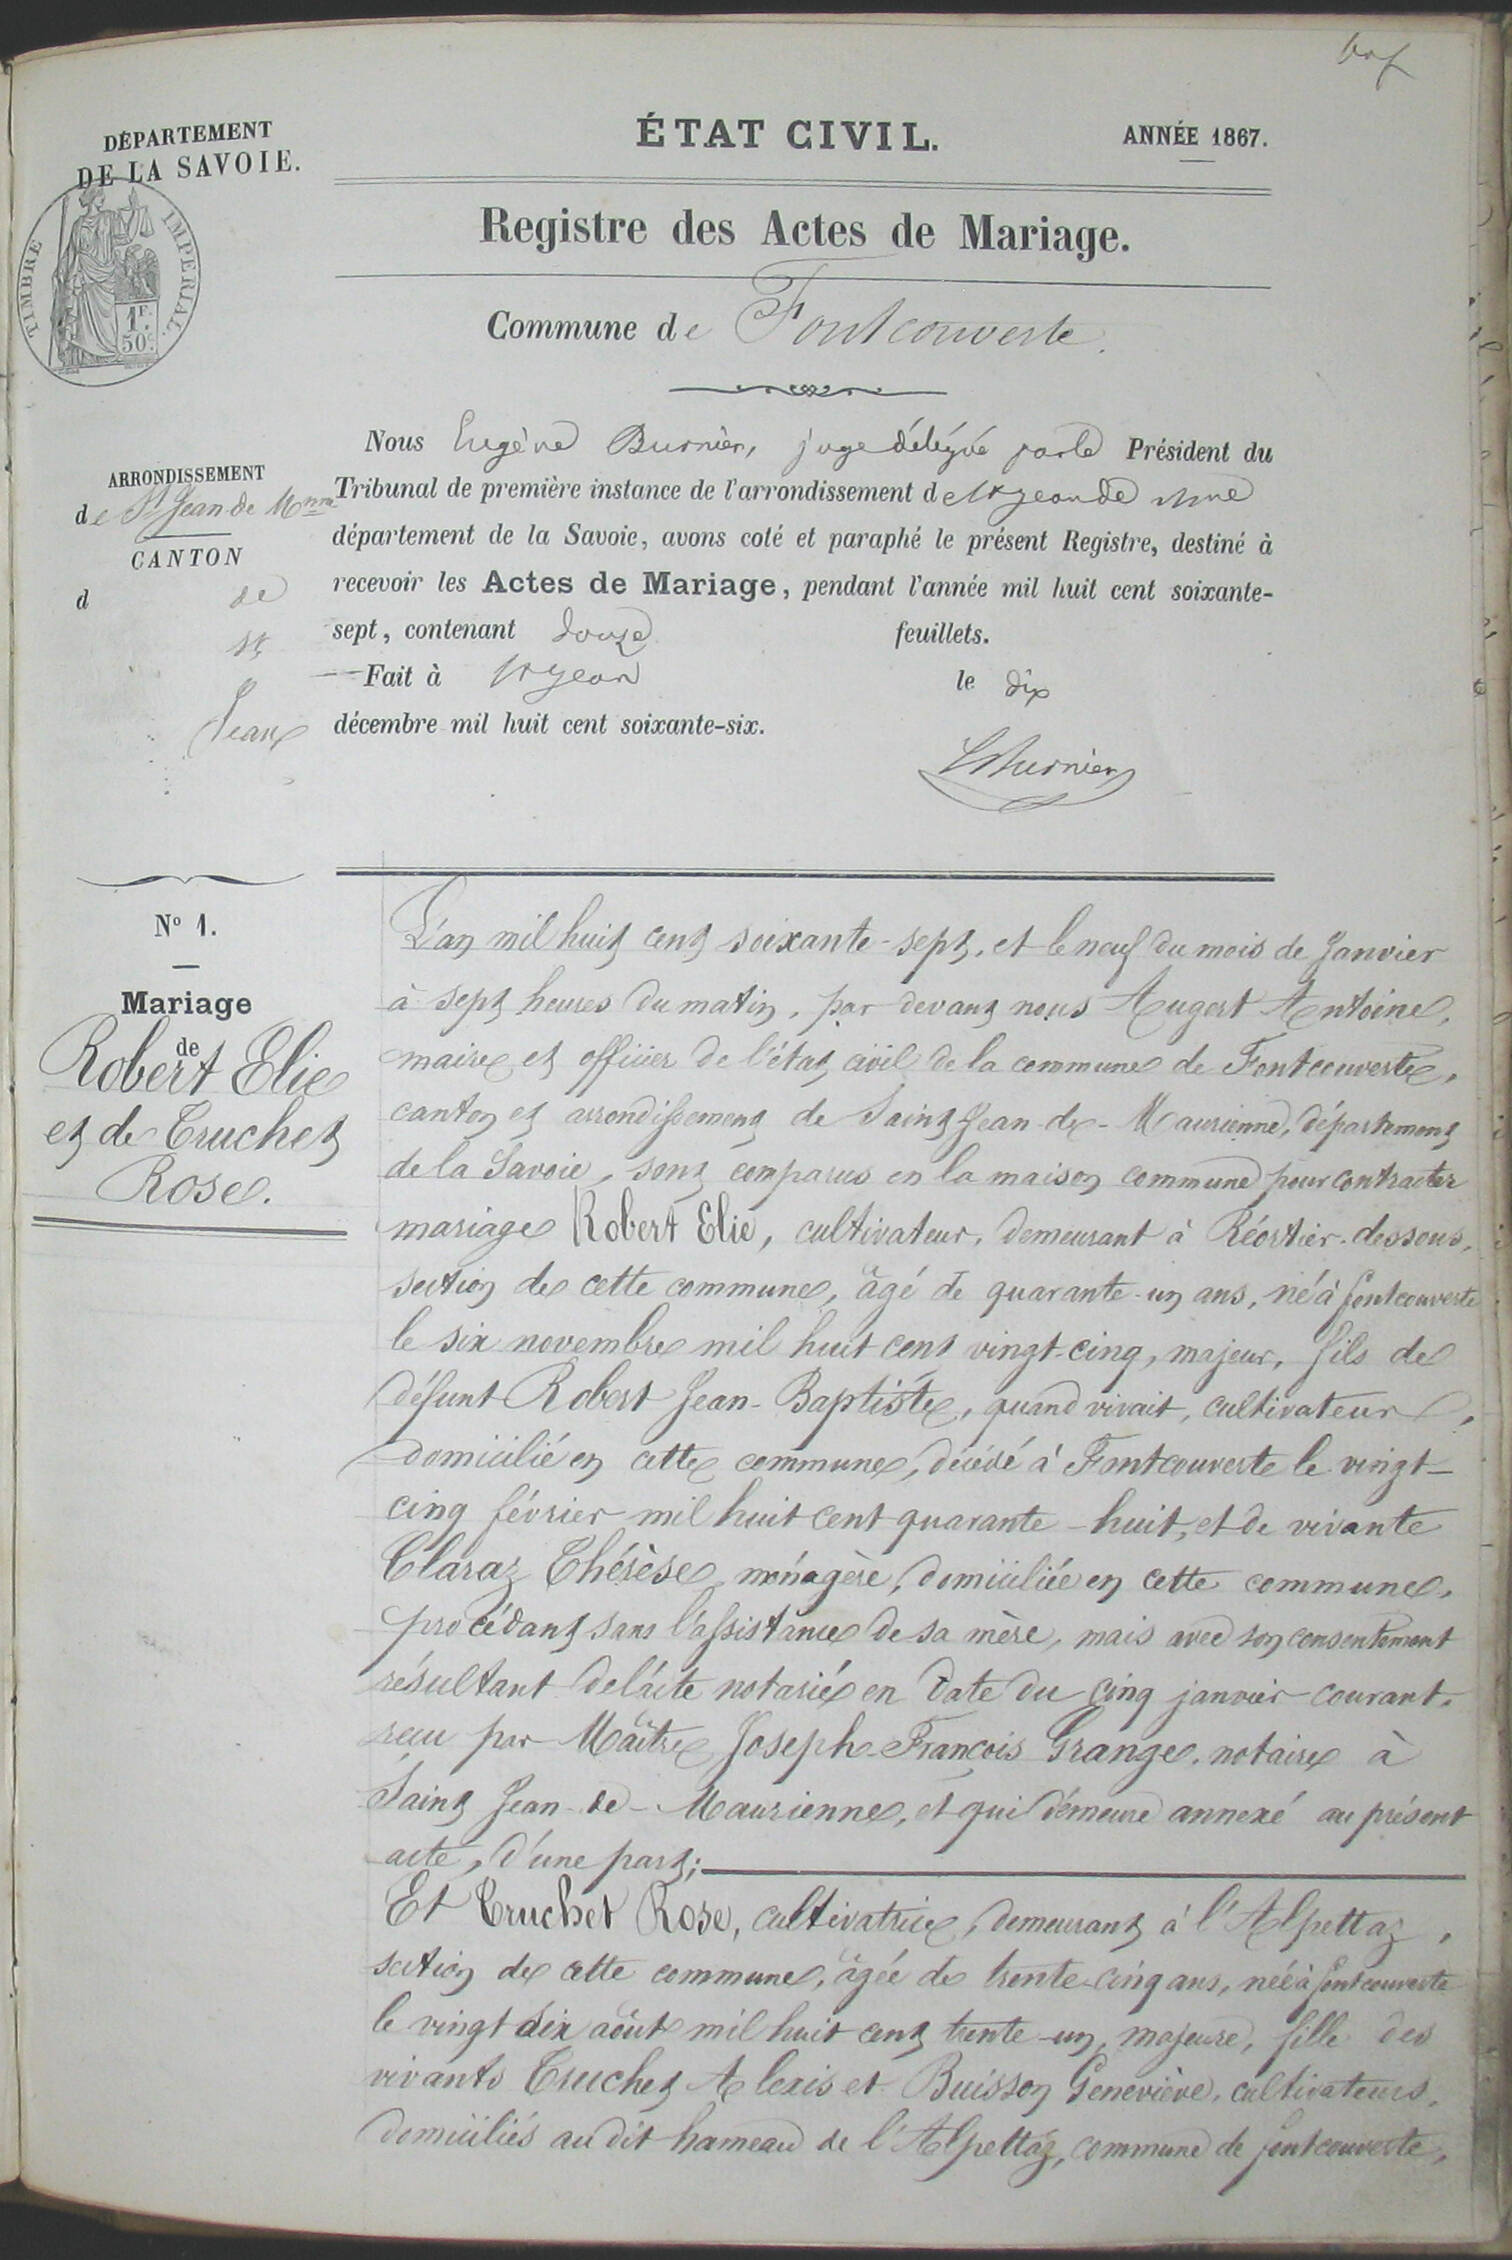 DÉPARTEMENT
DE LA SAVOIE.
ÉTAT CIVIL.
ANNÉE 1867.
TIMBRE IMPERIAL.
1F.
50c
Registre des Actes de Mariage.
Commune de Fontcouverte.
ARRONDISSEMENT
de St Jean de Mnne
CANTON
d de
St
Jean
Nous Eugène Burnier, juge délégué par le Président du
Tribunal de première instance de l'arrondissement de St Jean de Mne
département de la Savoie, avons coté et paraphé le présent Registre, destiné à
recevoir les Actes de Mariage, pendant l'année mil huit cent soixante-
sept, contenant douze feuillets.
Fait à St Jean le dix
décembre mil huit cent soixante-six.
Burnier
No 1.
Mariage
de
Robert Elie
et de Truchet
Rose.
L'an mil huit cent soixante-sept, et le neuf du mois de Janvier
à sept heures du matin, par devant nous Augert Antoine,
maire et officier de l'état civil de la commune de Fontcouverte,
canton et arrondissement de Saint Jean-de-Maurienne, département
de la Savoie, sont comparus en la maison commune pour contracter
mariage Robert Elie, cultivateur, demeurant à Réortier-dessous,
section de cette commune, âgé de quarante-un ans, né à fontcouverte
le six novembre mil huit cent vingt-cinq, majeur, fils de
défunt Robert Jean-Baptiste, quand vivait, cultivateur,
domicilié en cette commune, décédé à Fontcouverte le vingt-
cinq février mil huit cent quarante-huit, et de vivante
Claraz Thérèse, ménagère, domiciliée en cette commune,
procédant sans l'assistance de sa mère, mais avec son consentement
résultant de l'acte notarié en date du cinq janvier courant,
reçu par Maître Joseph-François Grange, notaire à
Saint Jean-de-Maurienne, et qui demeure annexé au présent
acte, d'une part;
Et Truchet Rose, cultivatrice, demeurant à l'Alpettaz,
section de cette commune, âgée de trente-cinq ans, née à fontcouverte
le vingt six août mil huit cent trente-un, majeure, fille des
vivants Truchet Alexis et Buisson Geneviève, cultivateurs,
domiciliés au dit hameau de l'Alpettaz, commune de fontcouverte,